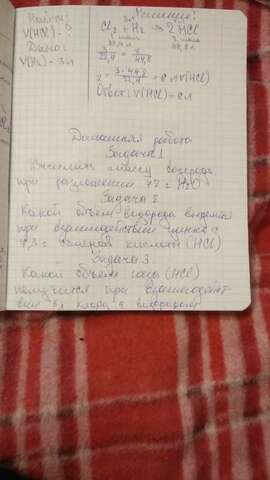 Найти:
V(HCl) = ?
Дано:
V(H₂) = 3л
Решение:
3л
Cl₂ + H₂ → 2HCl
1 моль 2 моль
22,4л 44,8л
3/22,4 = x/44,8
= 3·44,8/22,4 = 6л V(HCl)
Ответ: V(HCl) = 6л
Домашняя работа
Задача 1
Вычислить массу водорода
при разложении H₂O
Задача 2
Какой объем водорода
при взаимодействии цинка с
7,3г соляной кислоты (HCl)
Задача 3
Какой объем газа (HCl)
получится при взаимодейст
вии 5л хлора с водородом